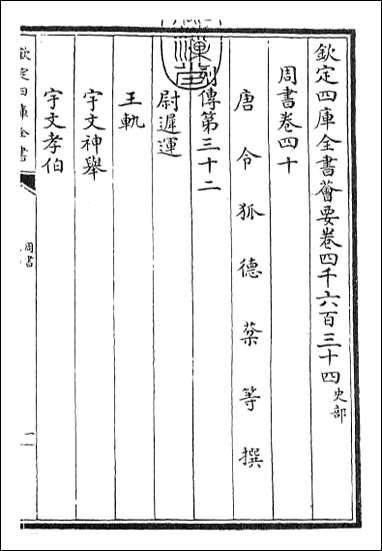 欽定四庫全書薈要卷四千六百三十四史部
周書卷四十
唐令狐德棻等撰
列傳第三十二
尉遲運
王軌
宇文神舉
宇文孝伯
欽定四庫全書
周書
一